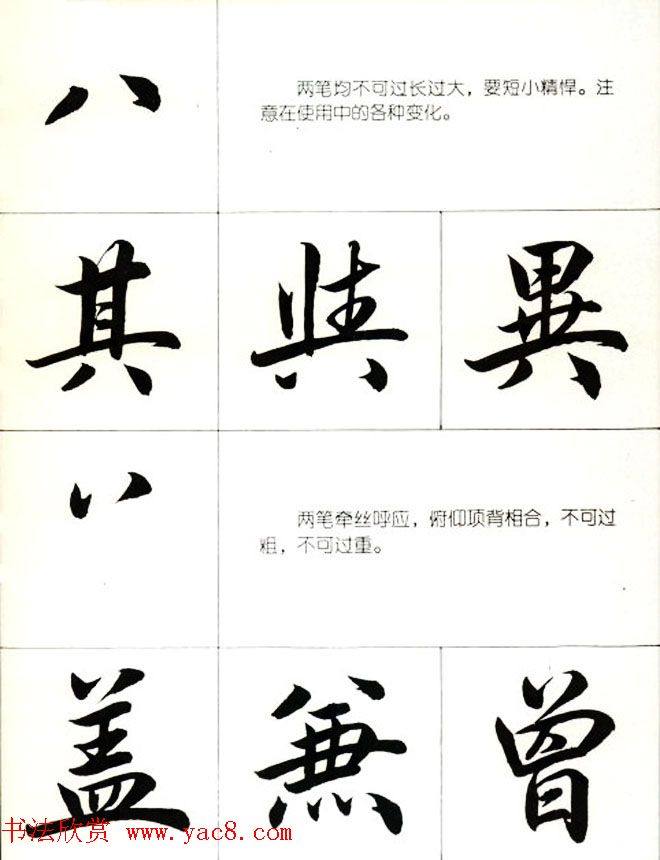 八
两笔均不可过长过大，要短小精悍。注
意在使用中的各种变化。
其 異
丷
两笔牵丝呼应，俯仰项背相合，不可过
粗，不可过重。
盖 兼 曾
书法欣赏 www.yac8.com